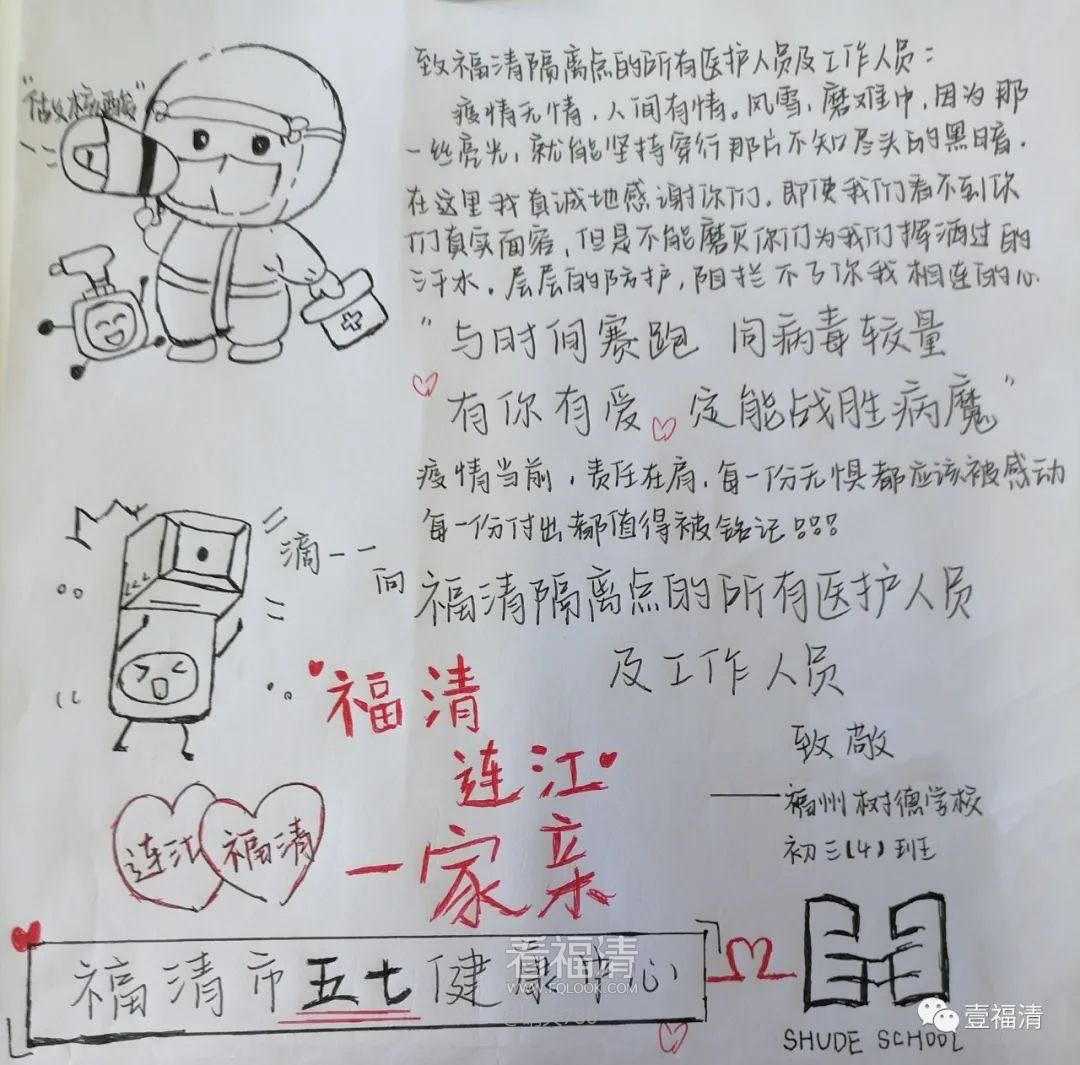 "做核酸啦"
致福清隔离点的所有医护人员及工作人员:
疫情无情,人间有情。风雪,磨难中,因为那
一丝亮光,就能坚持穿行那片不知尽头的黑暗.
在这里我真诚地感谢你们,即使我们看不到你
们真实面容,但是不能磨灭你们为我们挥洒过的
汗水.层层的防护,阻拦不了你我相连的心
"与时间赛跑 同病毒较量
有你有爱 定能战胜病魔"
疫情当前,责任在肩,每一份无惧都应该被感动
每一份付出都值得被铭记!!!
滴——
向福清隔离点的所有医护人员
及工作人员
致敬
——福州树德学校
初三(4)班
福清
连江
一家亲
连江 福清
福清市五七健康中心
看福清
WWW.FQLOOK.COM
SHUDE SCHOOL
壹福清